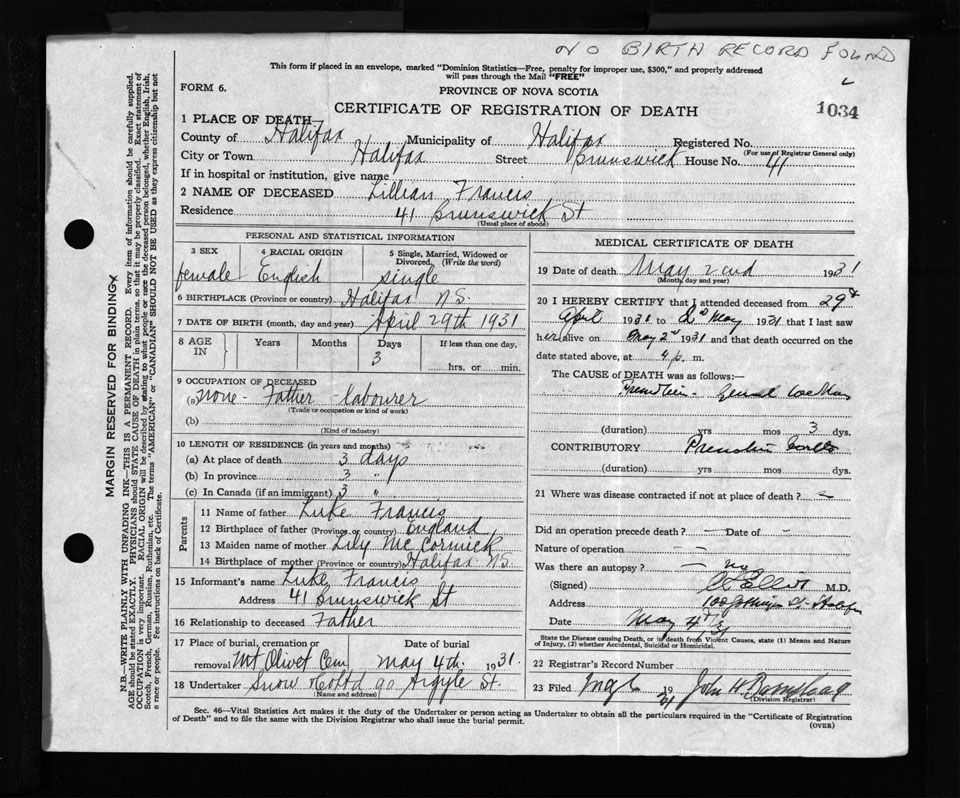 NO BIRTH RECORD FOUND
This form if placed in an envelope, marked "Dominion Statistics—Free, penalty for improper use, $300," and properly addressed
will pass through the Mail "FREE"
FORM 6.
PROVINCE OF NOVA SCOTIA
CERTIFICATE OF REGISTRATION OF DEATH
1034
1 PLACE OF DEATH
County of Halifax Municipality of Halifax Registered No.
(For use of Registrar General only)
City or Town Halifax Street Brunswick House No. 41
If in hospital or institution, give name
2 NAME OF DECEASED Lillian Francis
Residence 41 Brunswick St
(Usual place of abode)
PERSONAL AND STATISTICAL INFORMATION
3 SEX 4 RACIAL ORIGIN 5 Single, Married, Widowed or Divorced. (Write the word)
female English single
6 BIRTHPLACE (Province or country) Halifax N.S.
7 DATE OF BIRTH (month, day and year) April 29th 1931
8 AGE IN Years Months Days If less than one day,
3 hrs. or min.
9 OCCUPATION OF DECEASED
(a) none - Father - labourer
(Trade or occupation or kind of work)
(b)
(Kind of industry)
10 LENGTH OF RESIDENCE (in years and months)
(a) At place of death 3 days
(b) In province 3 "
(c) In Canada (if an immigrant) 3 "
Parents
11 Name of father Luke Francis
12 Birthplace of father (Province or country) England
13 Maiden name of mother Lily McCormick
14 Birthplace of mother (Province or country) Halifax N.S.
15 Informant's name Luke Francis
Address 41 Brunswick St
16 Relationship to deceased Father
17 Place of burial, cremation or Date of burial
removal Mt Olivet Cem May 4th. 1931.
18 Undertaker Snow & Co Ltd 90 Argyle St.
(Name and address)
MEDICAL CERTIFICATE OF DEATH
19 Date of death May 2nd 1931
(Month, day and year)
20 I HEREBY CERTIFY that I attended deceased from 29th
April 1931 to 2nd May 1931 that I last saw
her alive on May 2nd 1931 and that death occurred on the
date stated above, at 4 p. m.
The CAUSE OF DEATH was as follows:—
General
(duration) yrs mos 3 dys.
CONTRIBUTORY Premature
(duration) yrs mos dys.
21 Where was disease contracted if not at place of death? —
Did an operation precede death? — Date of —
Nature of operation — —
Was there an autopsy? — no
(Signed) M.D.
Address
Date May 4th/31
State the Disease causing Death, or in death from Violent Causes, state (1) Means and Nature
of Injury, (2) whether Accidental, Suicidal or Homicidal.
22 Registrar's Record Number
23 Filed 19 31 John H.
(Division Registrar)
Sec. 46—Vital Statistics Act makes it the duty of the Undertaker or person acting as Undertaker to obtain all the particulars required in the "Certificate of Registration
of Death" and to file the same with the Division Registrar who shall issue the burial permit.
(OVER)
MARGIN RESERVED FOR BINDING
N.B.—WRITE PLAINLY WITH UNFADING INK—THIS IS A PERMANENT RECORD. Every item of information should be carefully supplied.
AGE should be stated EXACTLY. PHYSICIANS should STATE CAUSE OF DEATH in plain terms, so that it may be properly classified. Exact statement of
OCCUPATION is very important. RACIAL ORIGIN will be described by stating to what people or race the deceased person belonged, whether English, Irish,
Scotch, French, German, Russian, Ruthenian, etc. The terms "AMERICAN" or "CANADIAN" SHOULD NOT BE USED as they express citizenship but not
a race or people. Fee instructions on back of Certificate.